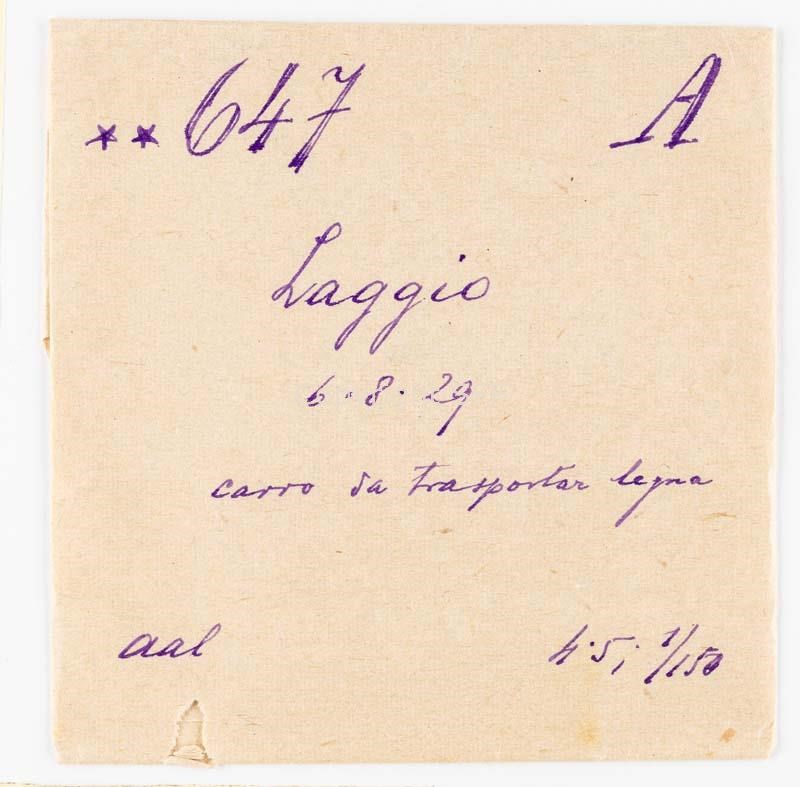 ** 647 A
Laggio
6.8.29
carro da trasportar legna
aal 4.5; 1/150